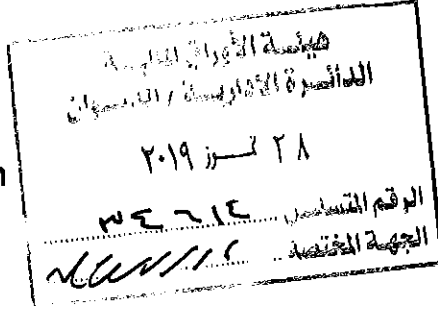 هيئة الأوراق المالية
الدائرة الإدارية / الديوان
٢٨ تموز ٢٠١٩
الرقم المتسلسل
الجهة المختصة